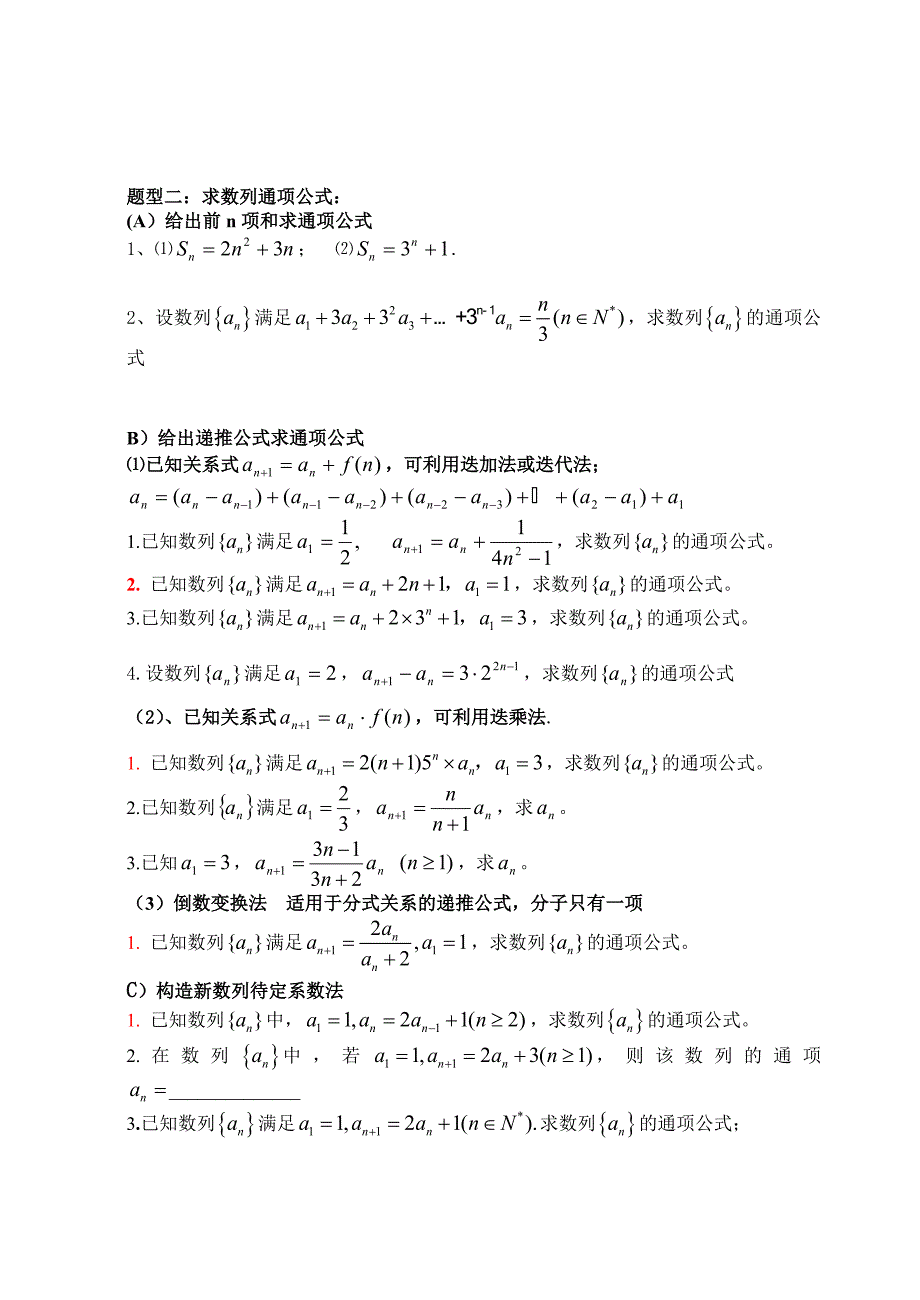 题型二：求数列通项公式：
(A）给出前 n 项和求通项公式
1、⑴ $S_n = 2n^2 + 3n$； ⑵ $S_n = 3^n + 1$.
2、设数列 $\{a_n\}$ 满足 $a_1 + 3a_2 + 3^2 a_3 + … +3^{n-1} a_n = \frac{n}{3} (n \in N^*)$，求数列 $\{a_n\}$ 的通项公
式
B）给出递推公式求通项公式
⑴已知关系式 $a_{n+1} = a_n + f(n)$，可利用迭加法或迭代法；
$a_n = (a_n - a_{n-1}) + (a_{n-1} - a_{n-2}) + (a_{n-2} - a_{n-3}) +  + (a_2 - a_1) + a_1$
1.已知数列 $\{a_n\}$ 满足 $a_1 = \frac{1}{2}$, $a_{n+1} = a_n + \frac{1}{4n^2 - 1}$，求数列 $\{a_n\}$ 的通项公式。
2. 已知数列 $\{a_n\}$ 满足 $a_{n+1} = a_n + 2n + 1$，$a_1 = 1$，求数列 $\{a_n\}$ 的通项公式。
3.已知数列 $\{a_n\}$ 满足 $a_{n+1} = a_n + 2 \times 3^n + 1$，$a_1 = 3$，求数列 $\{a_n\}$ 的通项公式。
4.设数列 $\{a_n\}$ 满足 $a_1 = 2$，$a_{n+1} - a_n = 3 \cdot 2^{2n-1}$，求数列 $\{a_n\}$ 的通项公式
（2）、已知关系式 $a_{n+1} = a_n \cdot f(n)$，可利用迭乘法.
1. 已知数列 $\{a_n\}$ 满足 $a_{n+1} = 2(n+1)5^n \times a_n$，$a_1 = 3$，求数列 $\{a_n\}$ 的通项公式。
2.已知数列 $\{a_n\}$ 满足 $a_1 = \frac{2}{3}$，$a_{n+1} = \frac{n}{n+1} a_n$，求 $a_n$。
3.已知 $a_1 = 3$，$a_{n+1} = \frac{3n-1}{3n+2} a_n$ $(n \geq 1)$，求 $a_n$。
（3）倒数变换法 适用于分式关系的递推公式，分子只有一项
1. 已知数列 $\{a_n\}$ 满足 $a_{n+1} = \frac{2a_n}{a_n + 2}, a_1 = 1$，求数列 $\{a_n\}$ 的通项公式。
C）构造新数列待定系数法
1. 已知数列 $\{a_n\}$ 中，$a_1 = 1, a_n = 2a_{n-1} + 1(n \geq 2)$，求数列 $\{a_n\}$ 的通项公式。
2. 在数列 $\{a_n\}$ 中，若 $a_1 = 1, a_{n+1} = 2a_n + 3(n \geq 1)$，则该数列的通项
$a_n =$______________
3.已知数列 $\{a_n\}$ 满足 $a_1 = 1, a_{n+1} = 2a_n + 1(n \in N^*).$求数列 $\{a_n\}$ 的通项公式；